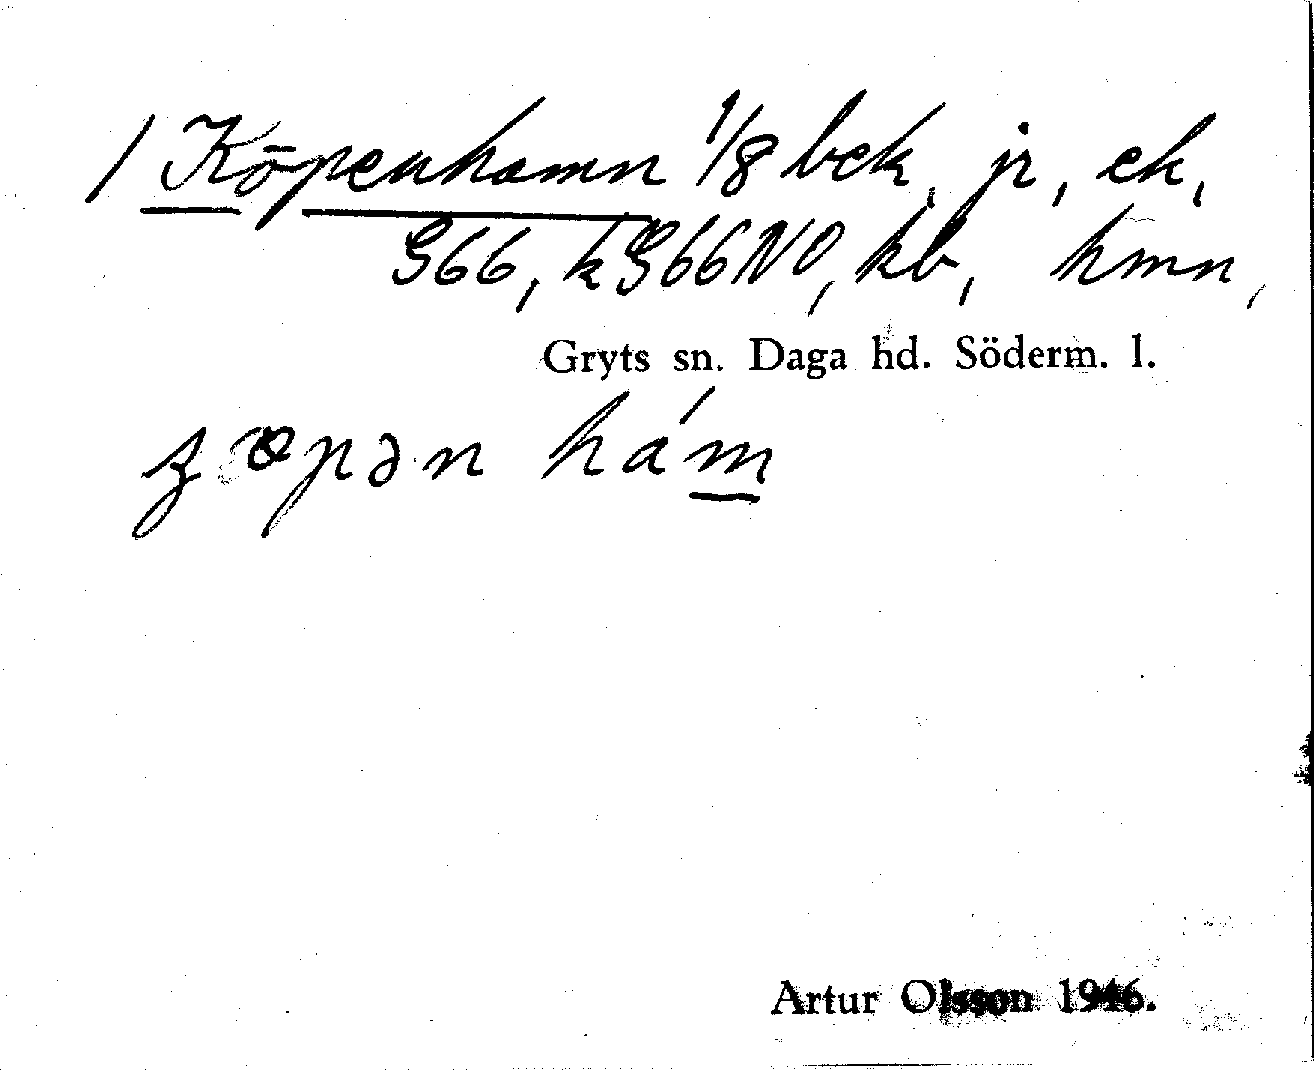 / Köpenhamn 1/8 bek, jr, ek,
G66, kG66NO, kb, hmn,
Gryts sn. Daga hd. Söderm. l.
hám
Artur Olsson 1946.